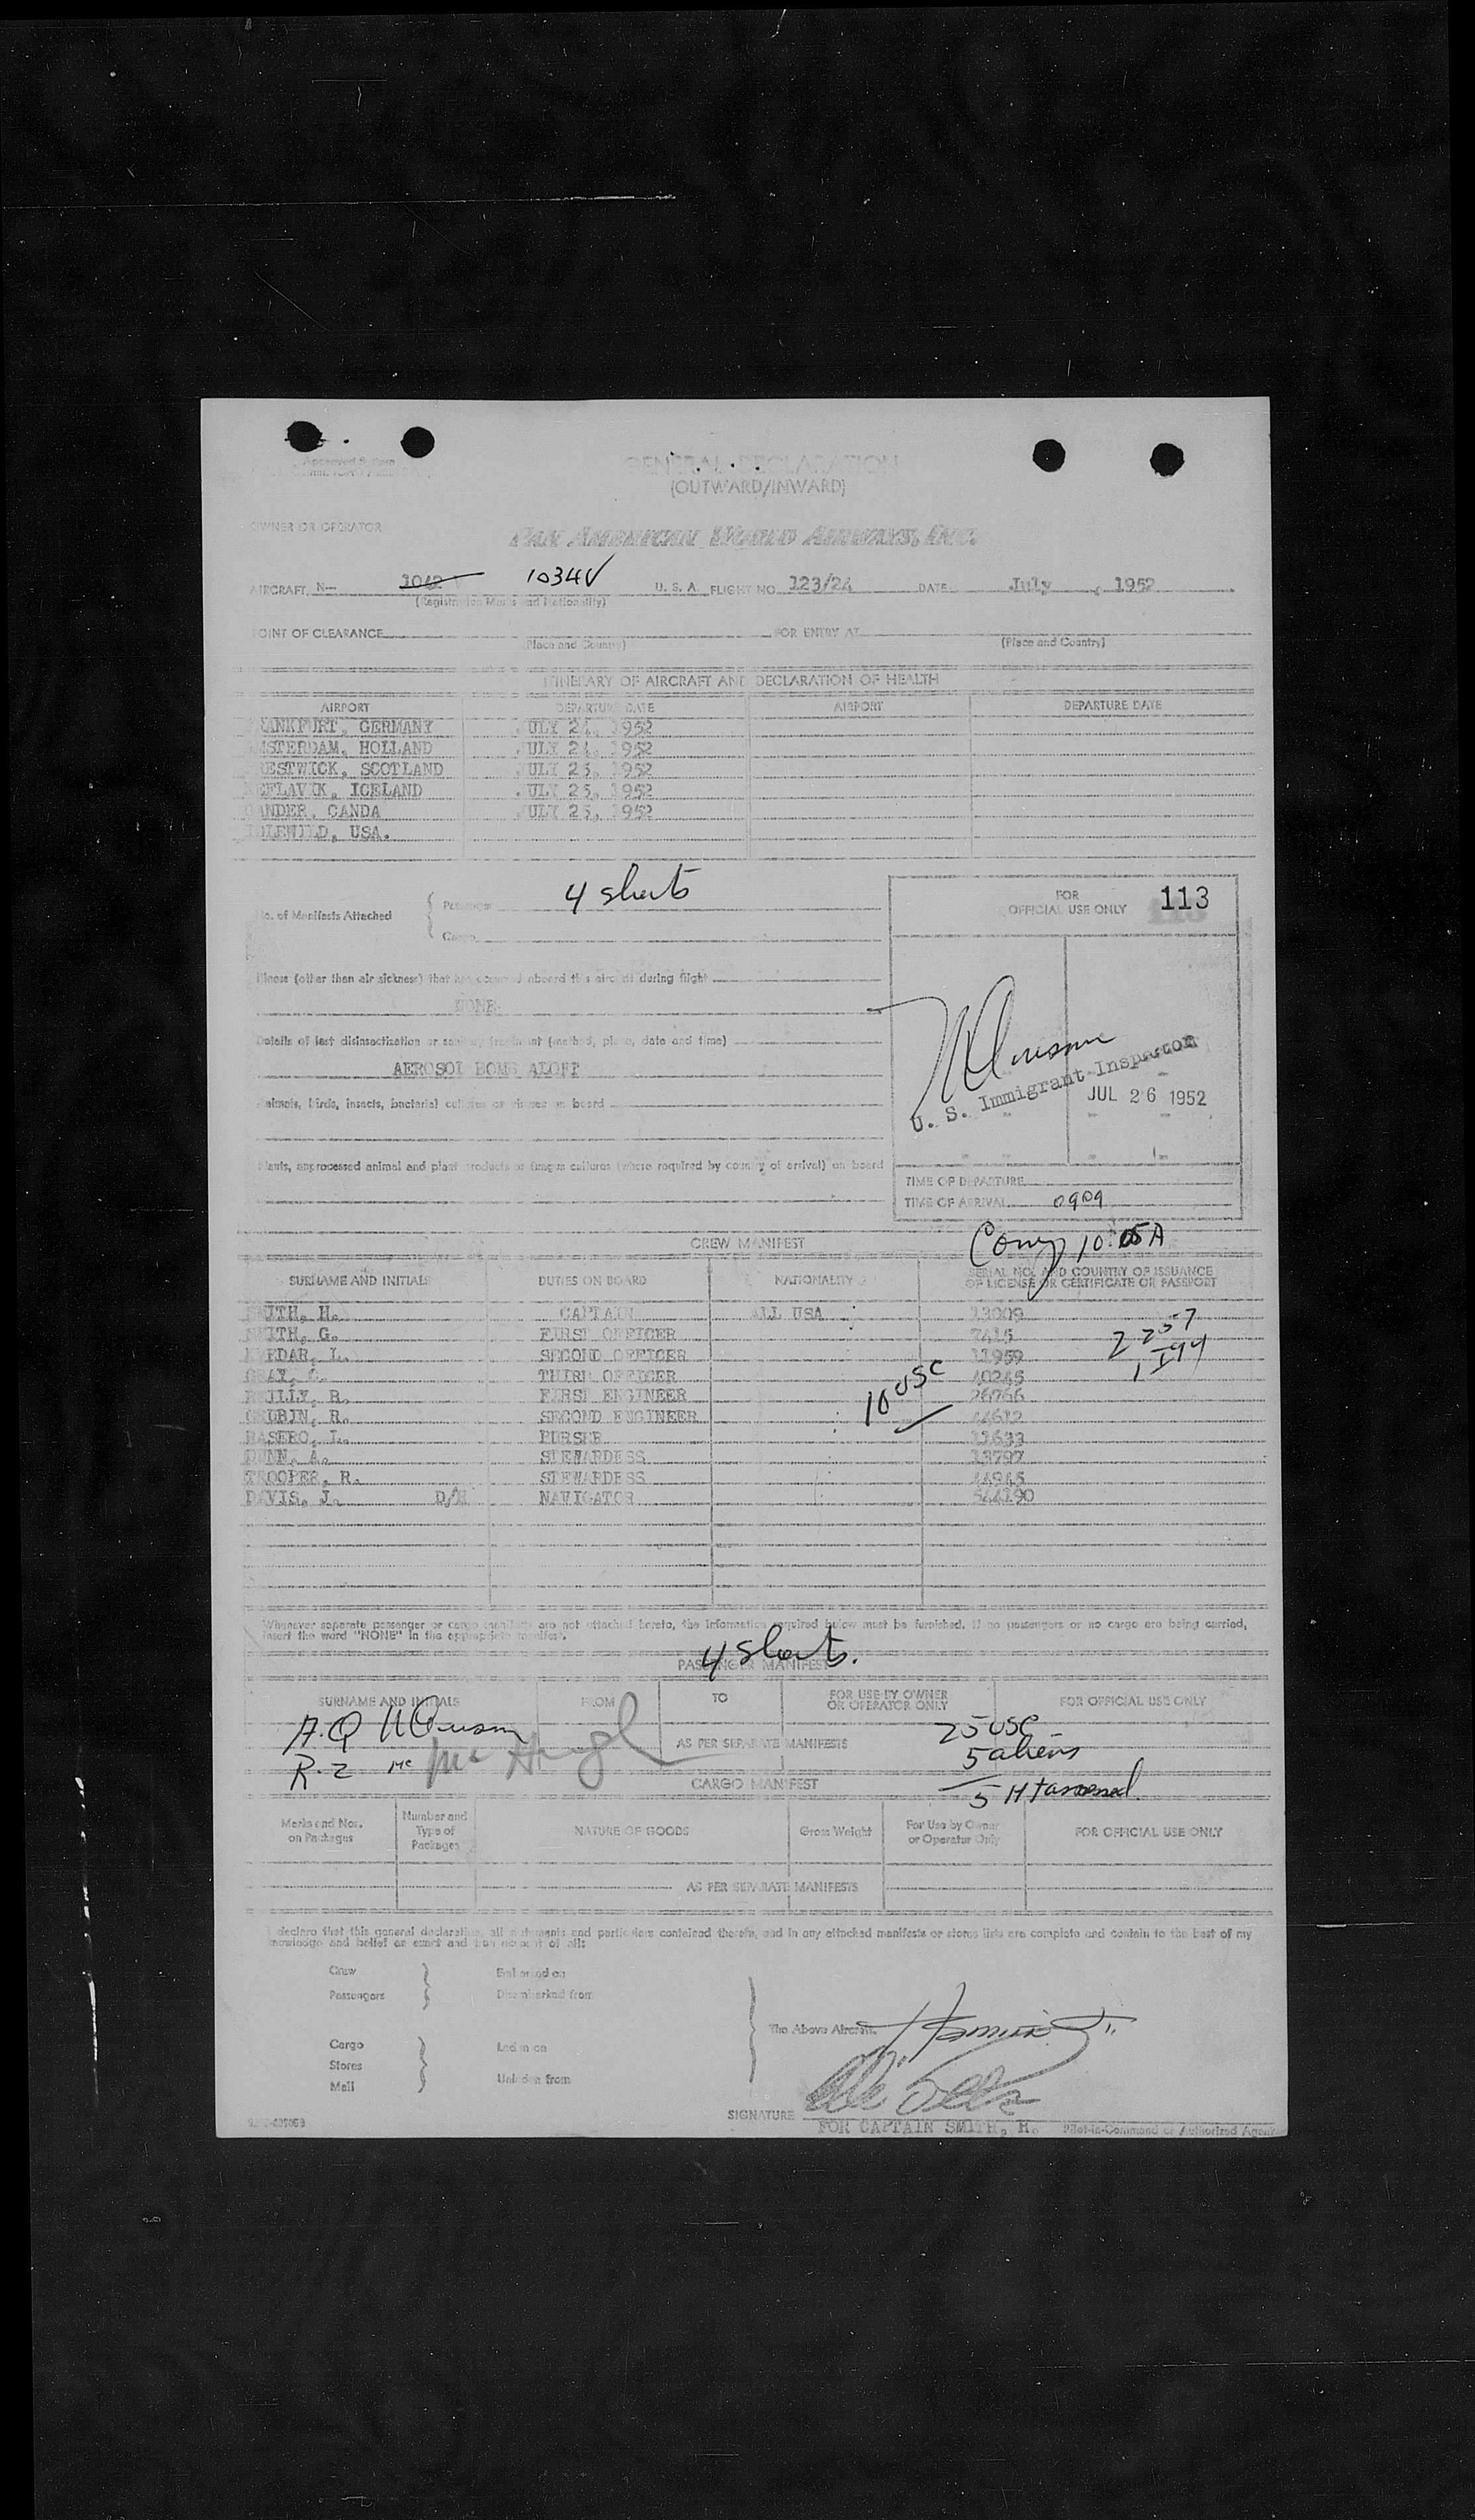 GENERAL DECLARATION
(OUTWARD/INWARD)
OWNER OR OPERATOR
PAN AMERICAN WORLD AIRWAYS, INC.
AIRCRAFT N— 1034V U. S. A. FLIGHT NO. 123/24 DATE July , 1952
(Registration Marks and Nationality)
POINT OF CLEARANCE FOR ENTRY AT
(Place and Country) (Place and Country)
ITINERARY OF AIRCRAFT AND DECLARATION OF HEALTH
AIRPORT DEPARTURE DATE AIRPORT DEPARTURE DATE
RANKFURT, GERMANY ULY 24, 1952
MSTERDAM, HOLLAND ULY 24, 1952
ESTWICK, SCOTLAND ULY 25, 1952
EFLAVIK, ICELAND ULY 25, 1952
ANDER, CANDA ULY 25, 1952
DLEWILD, USA.
4 sheets
FOR
OFFICIAL USE ONLY 113
No. of Manifests Attached
Cargo
Illness (other than air sickness) that has occurred aboard this aircraft during flight
NONE
Details of last disinsectization or sanitary treatment (method, place, date and time)
AEROSOL BOMB ALOFT
Animals, birds, insects, bacterial cultures or viruses on board
U. S. Immigrant Inspector
JUL 26 1952
Plants, unprocessed animal and plant products or fungus cultures (where required by country of arrival) on board
TIME OF DEPARTURE
TIME OF ARRIVAL 0909
CREW MANIFEST
10:05A
SURNAME AND INITIALS DUTIES ON BOARD NATIONALITY SERIAL NO. AND COUNTRY OF ISSUANCE
OF LICENSE OR CERTIFICATE OR PASSPORT
SMITH, H. CAPTAIN ALL USA 13909
SMITH, G. FIRST OFFICER 7415
EDAR, L. SECOND OFFICER 11959
GRAY, THIRD OFFICER 40245
REILLY, R. FIRST ENGINEER 26766
R. SECOND ENGINEER 44612
HASERO, L. PURSER 11633
DUNN, A. STEWARDESS 13797
TROOPER, R. STEWARDESS 44945
DAVIS, J. D/H NAVIGATOR 544190
10 USC
Whenever separate passenger or cargo manifests are not attached hereto, the information required below must be furnished. If no passengers or no cargo are being carried,
insert the word "NONE" in the appropriate manifest.
4 sheets.
PASSENGER MANIFEST
SURNAME AND INITIALS FROM TO FOR USE BY OWNER
OR OPERATOR ONLY FOR OFFICIAL USE ONLY
25 USC
AS PER SEPARATE MANIFESTS
5 aliens
R-2 Mc McHugh
CARGO MANIFEST
Marks and Nos.
on Packages Number and
Type of
Packages NATURE OF GOODS Gross Weight For Use by Owner
or Operator Only FOR OFFICIAL USE ONLY
AS PER SEPARATE MANIFESTS
declare that this general declaration, all statements and particulars contained therein, and in any attached manifests or stores lists are complete and contain to the best of my
knowledge and belief an exact and true account of all:
Crew Embarked on
Passengers Disembarked from
The Above Aircraft.
Cargo Laden on
Stores
Mail Unladen from
SIGNATURE
FOR CAPTAIN SMITH, H. Pilot-in-Command or Authorized Agent